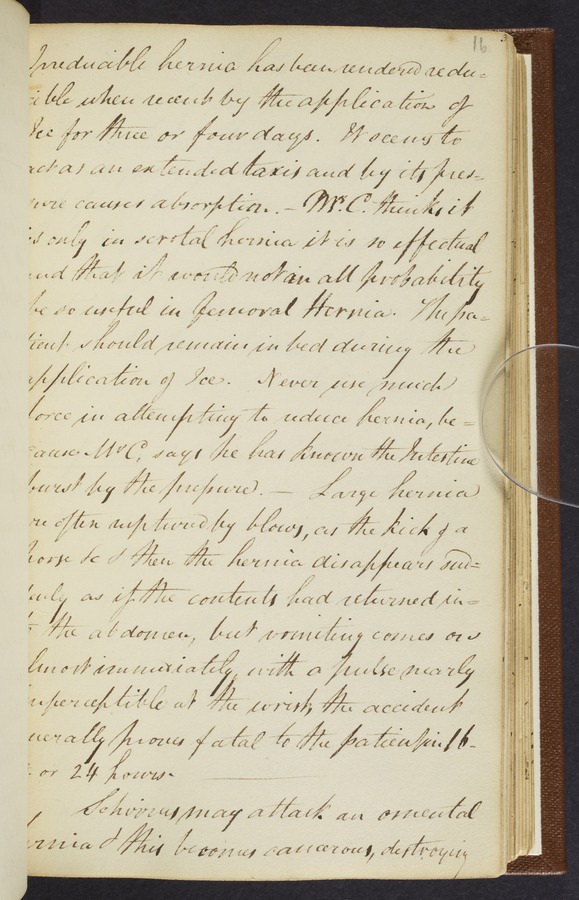 16
Irreducible hernia has been rendered redu=
cible when recent by the application of
Ice for three or four days. It seems to
act as an extended taxis and by its pres-
sure causes absorption. – Mr. C. thinks it
is only in scrotal hernia it is so effectual
and that it would not in all probability
be so useful in Femoral Hernia. The pa=
tient should remain in bed during the
application of Ice. Never use much
force in attempting to reduce hernia, be=
cause Mr C. says he has known the Intestine
burst by the pressure. — Large hernia
are often ruptured by blows, as the kick of a
horse &c & then the hernia disappears sud=
denly as if the contents had returned in=
to the abdomen, but vomiting comes on
almost immediately, with a pulse nearly
imperceptible at the wrist, the accident
generally proves fatal to the patient in 16-
or 24 hours.
Schirrus may attack an omental
hernia & this becomes cancerous, destroying